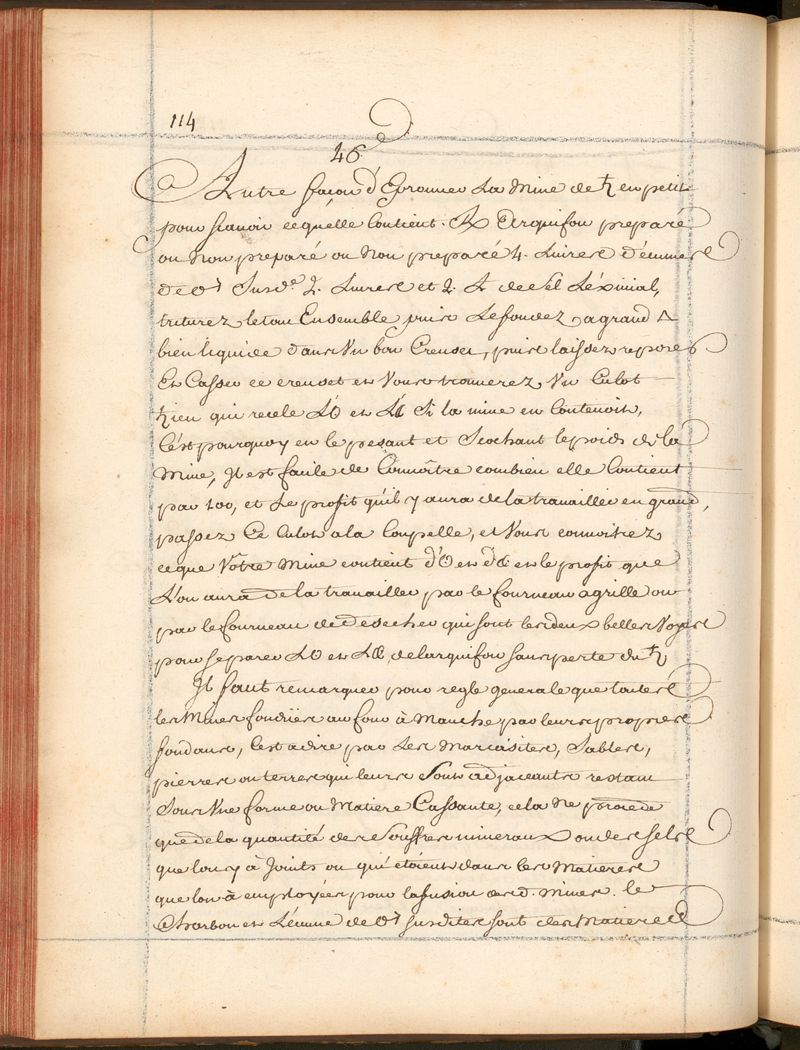 114
46.e
Autre façon d'Eprouver La Mine de ♄ en petit
pour scavoir ce qu'elle Contient. ℞ Arquifou preparé
ou Non preparé 4. Livres d'écume
de Susd.e 2. Livres et 2. de sel
triturez le tout Ensemble puis Le fondez a grand △
bien liquide dans Un bon Creuset, puis laissez reposer
Et Casser ce creuset et Vous trouverez Un Culot
♄ien qui recele L'☉ et La ☾ Si la mine en Contenoit,
C'est pourquoy en le pesant et Scachant le poids de la
Mine, Il est facile de Connoître combien elle Contient
par 100, et Le profit qu'il y aura de la travailler en grand,
passez Ce Culot a la Coupelle, et Vous connoitrez
ce que Vôtre Mine contient d'☉ et de ☾ et le profit que
L'on aura de la travailler par le fourneau a grille ou
par le fourneau de qui sont les deux belles Voyes
pour separer L'☉ et La ☾ de l'arquifou sans perte du ♄
Il faut remarquer pour regle generale que toutes
les Mines fondües au four à Manche par leurs propres
fondans, C'est a dire par Les Marcasites, Sables,
pierres ou terres qui leurs Sont adjaceants restant
Sous Une forme ou Matiere Cassante, cela Ne procede
que de la quantité des Souffres mineraux ou des sels
que lon y à Joints ou qui étoient dans les Matieres
que lon à employées pour la fusion desd. Mines. le
Charbon et L'écume de susdites sont des Matieres